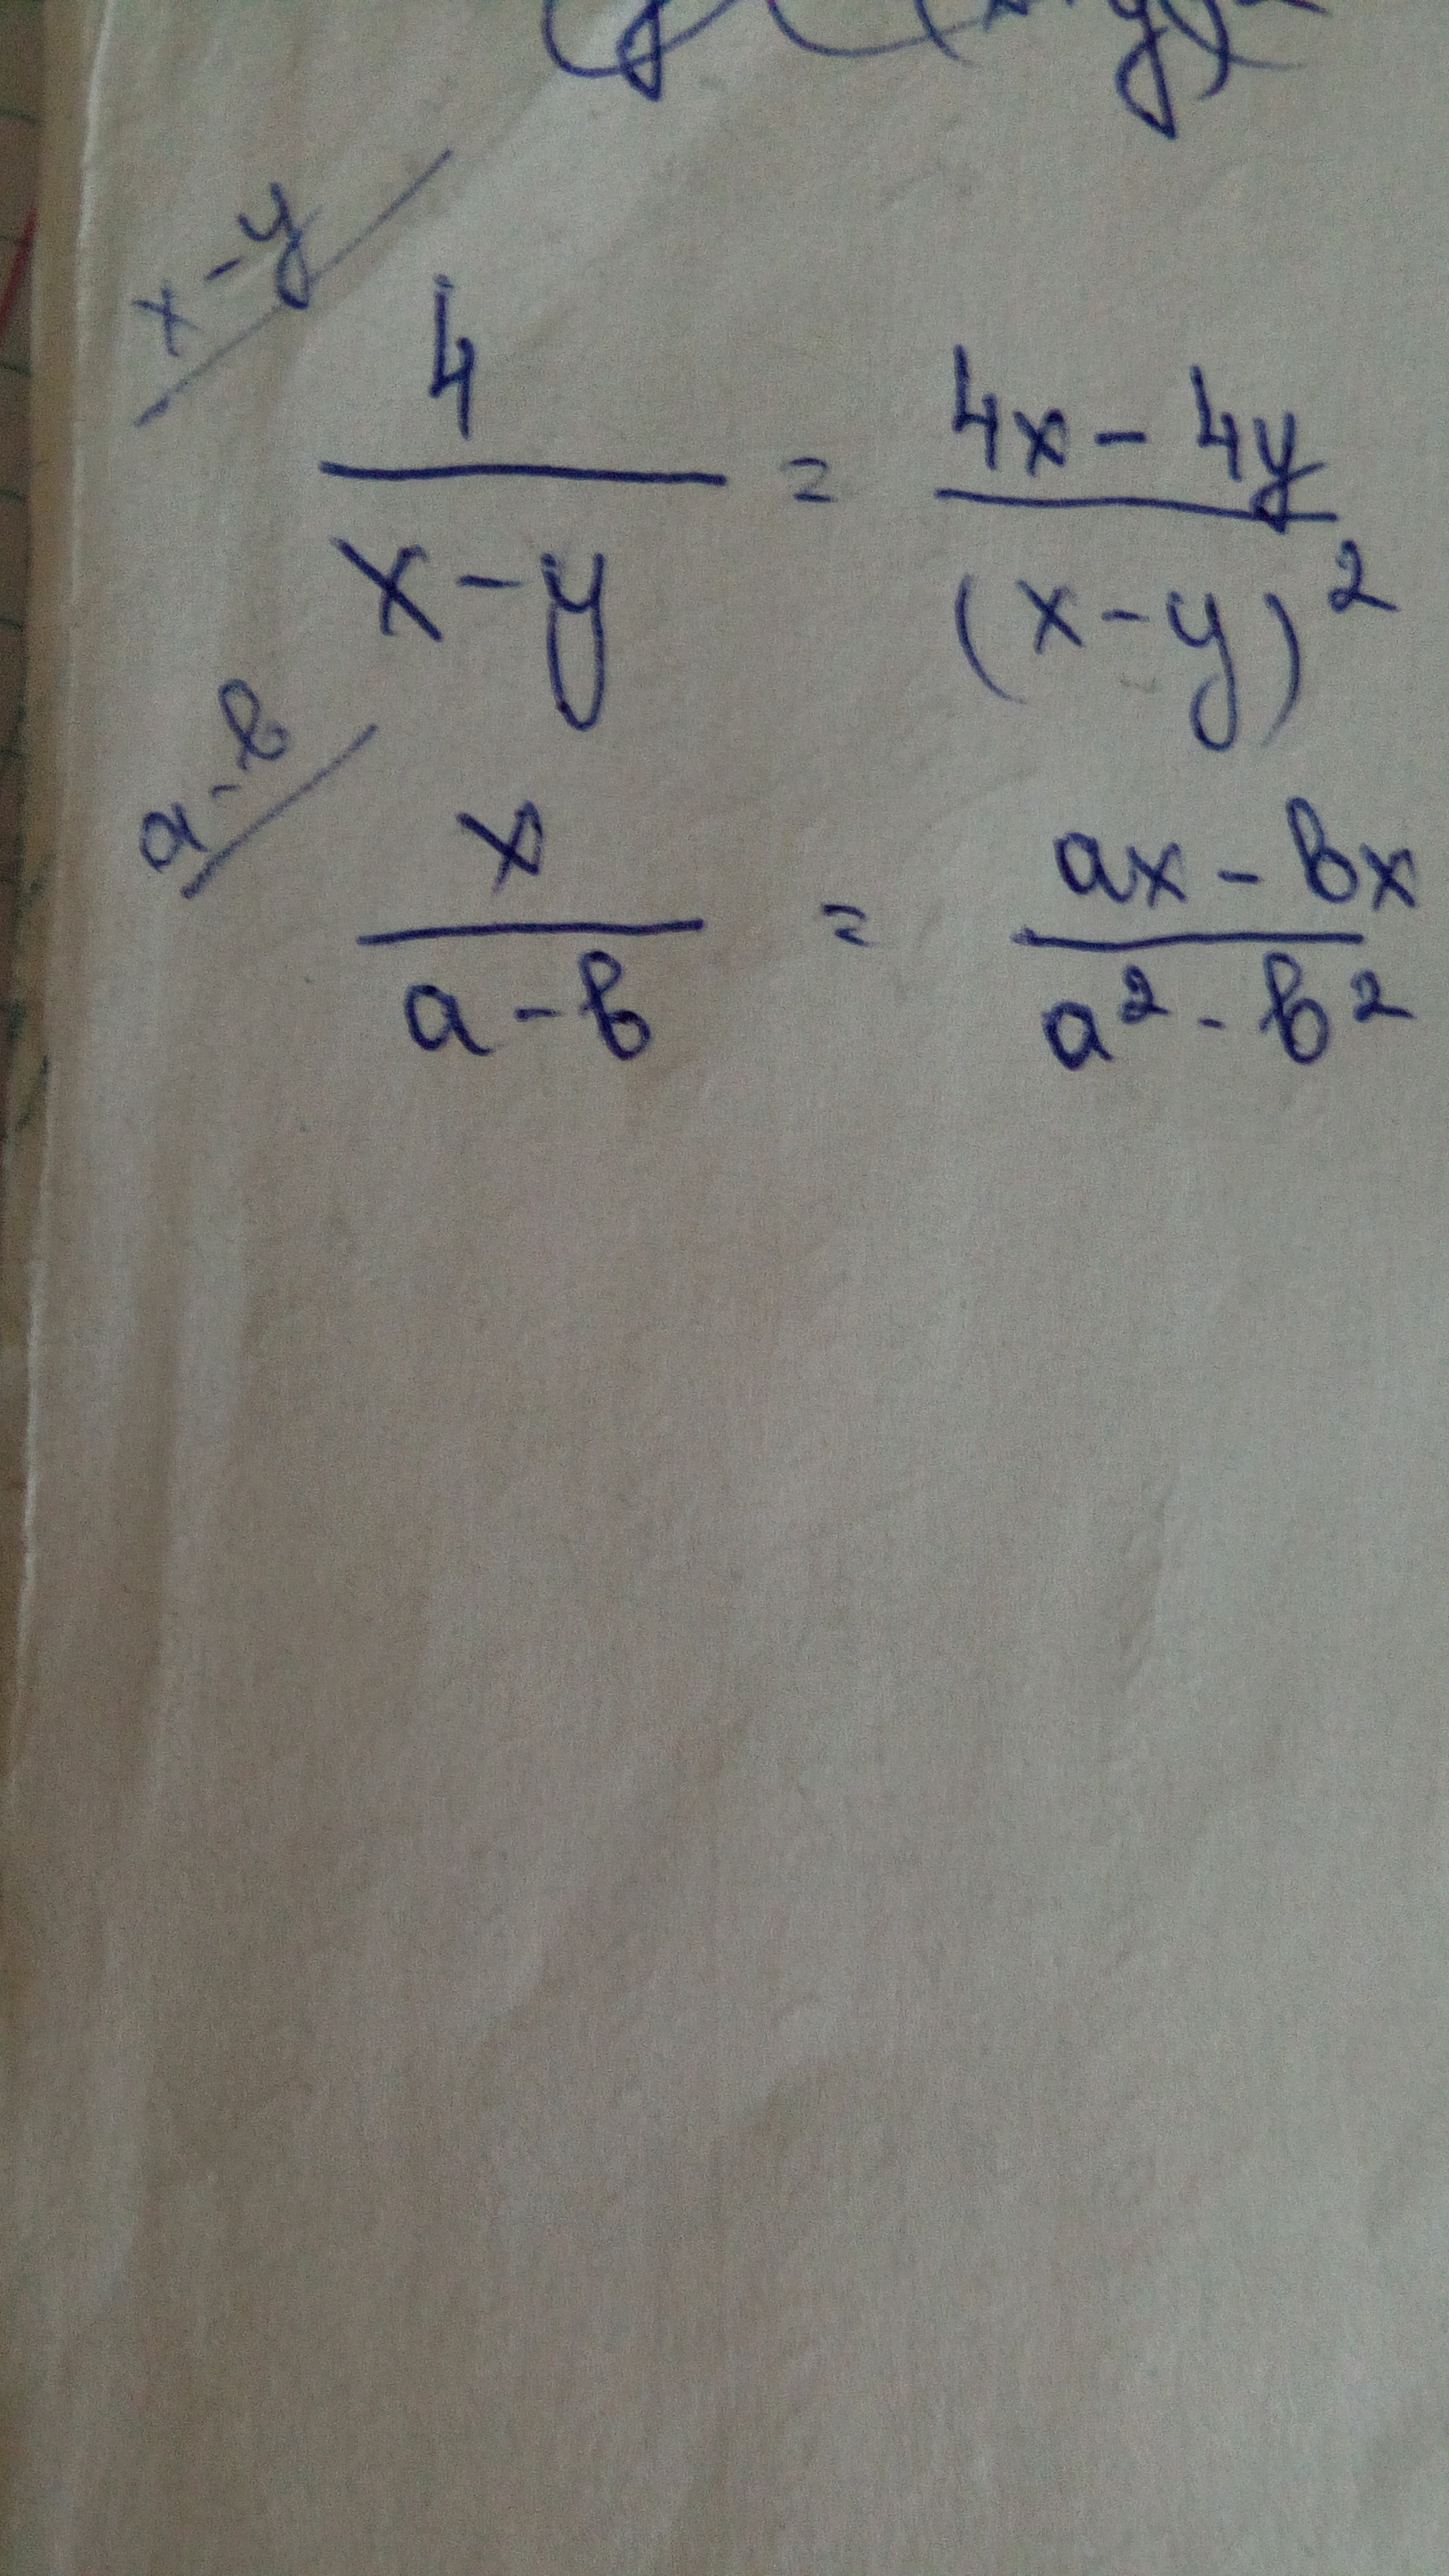 x-y
4 / x-y = 4x-4y / (x-y)²
a-b
x / a-b = ax-bx / a²-b²